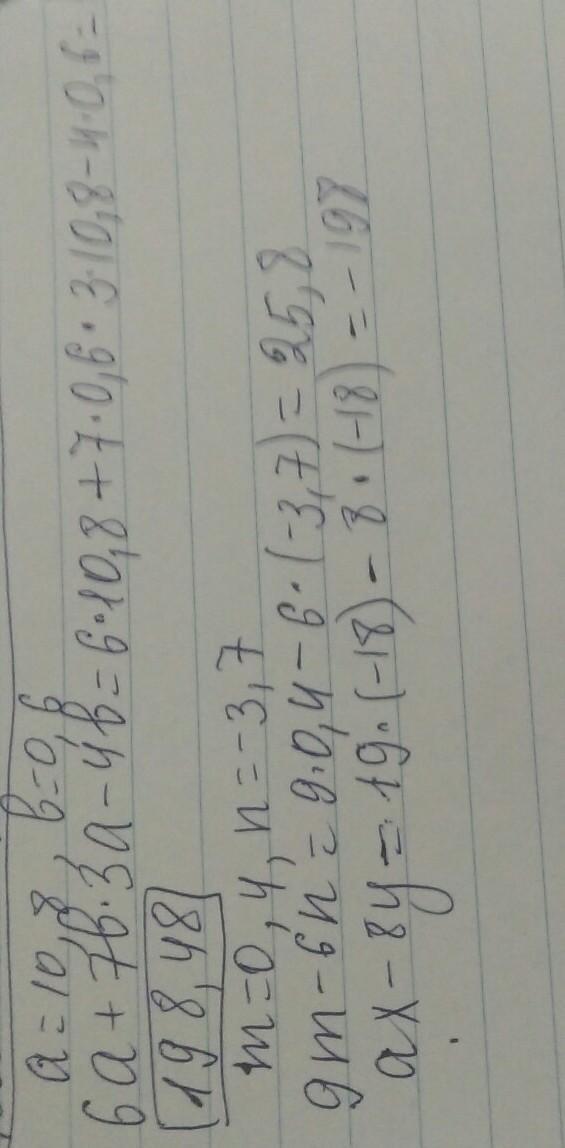 a = 10,8, b = 0,6
6a + 7b·3a - 4b = 6·10,8 + 7·0,6·3·10,8 - 4·0,6 =
198,48
m = 0,4, n = -3,7
9m - 6n = 9·0,4 - 6·(-3,7) = 25,8
ax - 8y = 19·(-18) - 8·(-18) = -198